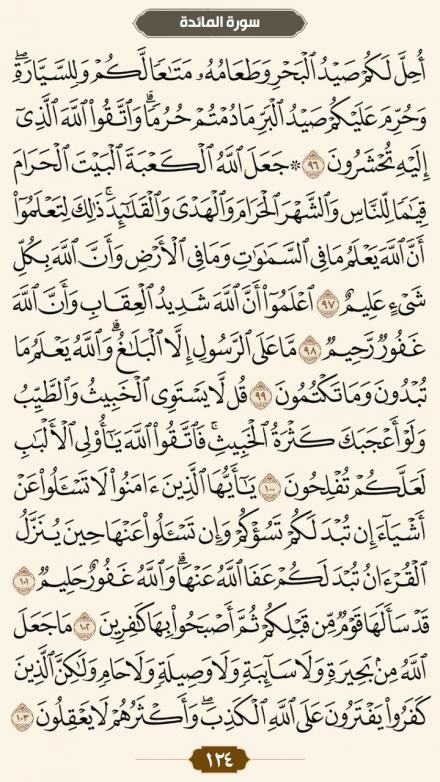 سورة المائدة
أُحِلَّ لَكُمْ صَيْدُ ٱلْبَحْرِ وَطَعَامُهُۥ مَتَٰعًا لَّكُمْ وَلِلسَّيَّارَةِۖ
وَحُرِّمَ عَلَيْكُمْ صَيْدُ ٱلْبَرِّ مَا دُمْتُمْ حُرُمًاۗ وَٱتَّقُوا۟ ٱللَّهَ ٱلَّذِىٓ
إِلَيْهِ تُحْشَرُونَ ٩٦ ۞ جَعَلَ ٱللَّهُ ٱلْكَعْبَةَ ٱلْبَيْتَ ٱلْحَرَامَ
قِيَٰمًا لِّلنَّاسِ وَٱلشَّهْرَ ٱلْحَرَامَ وَٱلْهَدْىَ وَٱلْقَلَٰٓئِدَۚ ذَٰلِكَ لِتَعْلَمُوٓا۟
أَنَّ ٱللَّهَ يَعْلَمُ مَا فِى ٱلسَّمَٰوَٰتِ وَمَا فِى ٱلْأَرْضِ وَأَنَّ ٱللَّهَ بِكُلِّ
شَىْءٍ عَلِيمٌ ٩٧ ٱعْلَمُوٓا۟ أَنَّ ٱللَّهَ شَدِيدُ ٱلْعِقَابِ وَأَنَّ ٱللَّهَ
غَفُورٌ رَّحِيمٌ ٩٨ مَّا عَلَى ٱلرَّسُولِ إِلَّا ٱلْبَلَٰغُۗ وَٱللَّهُ يَعْلَمُ مَا
تُبْدُونَ وَمَا تَكْتُمُونَ ٩٩ قُل لَّا يَسْتَوِى ٱلْخَبِيثُ وَٱلطَّيِّبُ
وَلَوْ أَعْجَبَكَ كَثْرَةُ ٱلْخَبِيثِۚ فَٱتَّقُوا۟ ٱللَّهَ يَٰٓأُو۟لِى ٱلْأَلْبَٰبِ
لَعَلَّكُمْ تُفْلِحُونَ ١٠٠ يَٰٓأَيُّهَا ٱلَّذِينَ ءَامَنُوا۟ لَا تَسْـَٔلُوا۟ عَنْ
أَشْيَآءَ إِن تُبْدَ لَكُمْ تَسُؤْكُمْ وَإِن تَسْـَٔلُوا۟ عَنْهَا حِينَ يُنَزَّلُ
ٱلْقُرْءَانُ تُبْدَ لَكُمْ عَفَا ٱللَّهُ عَنْهَاۗ وَٱللَّهُ غَفُورٌ حَلِيمٌ ١٠١
قَدْ سَأَلَهَا قَوْمٌ مِّن قَبْلِكُمْ ثُمَّ أَصْبَحُوا۟ بِهَا كَٰفِرِينَ ١٠٢ مَا جَعَلَ
ٱللَّهُ مِنۢ بَحِيرَةٍ وَلَا سَآئِبَةٍ وَلَا وَصِيلَةٍ وَلَا حَامٍ وَلَٰكِنَّ ٱلَّذِينَ
كَفَرُوا۟ يَفْتَرُونَ عَلَى ٱللَّهِ ٱلْكَذِبَۖ وَأَكْثَرُهُمْ لَا يَعْقِلُونَ ١٠٣
١٢٤